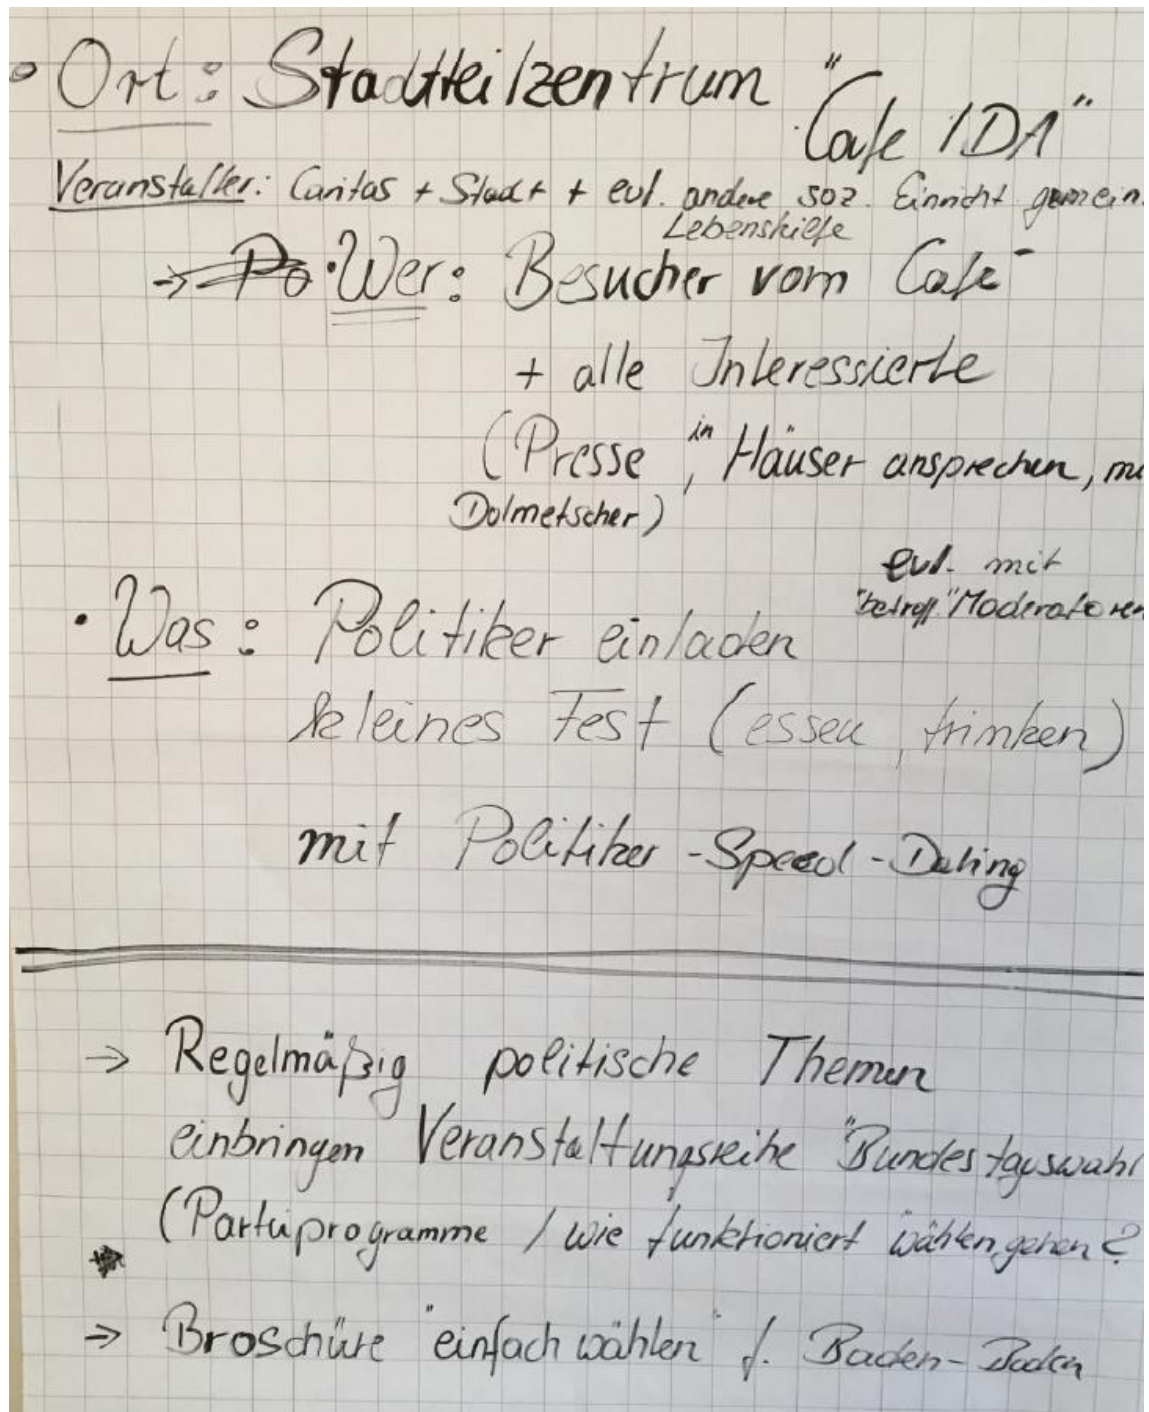 • Ort: Stadtteilzentrum "Cafe IDA"
Veranstalter: Caritas + Stadt + evl. andere soz. Einricht gemein.
Lebenshilfe
→ Po • Wer: Besucher vom Cafe
+ alle Interessierte
(Presse, in Häuser ansprechen, mi
Dolmetscher)
evl. mit
"betroff." Moderatoren
• Was: Politiker einladen
kleines Fest (essen, trinken)
mit Politiker-Speed-Dating
→ Regelmäßig politische Themen
einbringen Veranstaltungsreihe "Bundestagswahl
(Parteiprogramme / wie funktioniert wählen gehen?
→ Broschüre "einfach wählen" f. Baden-Baden